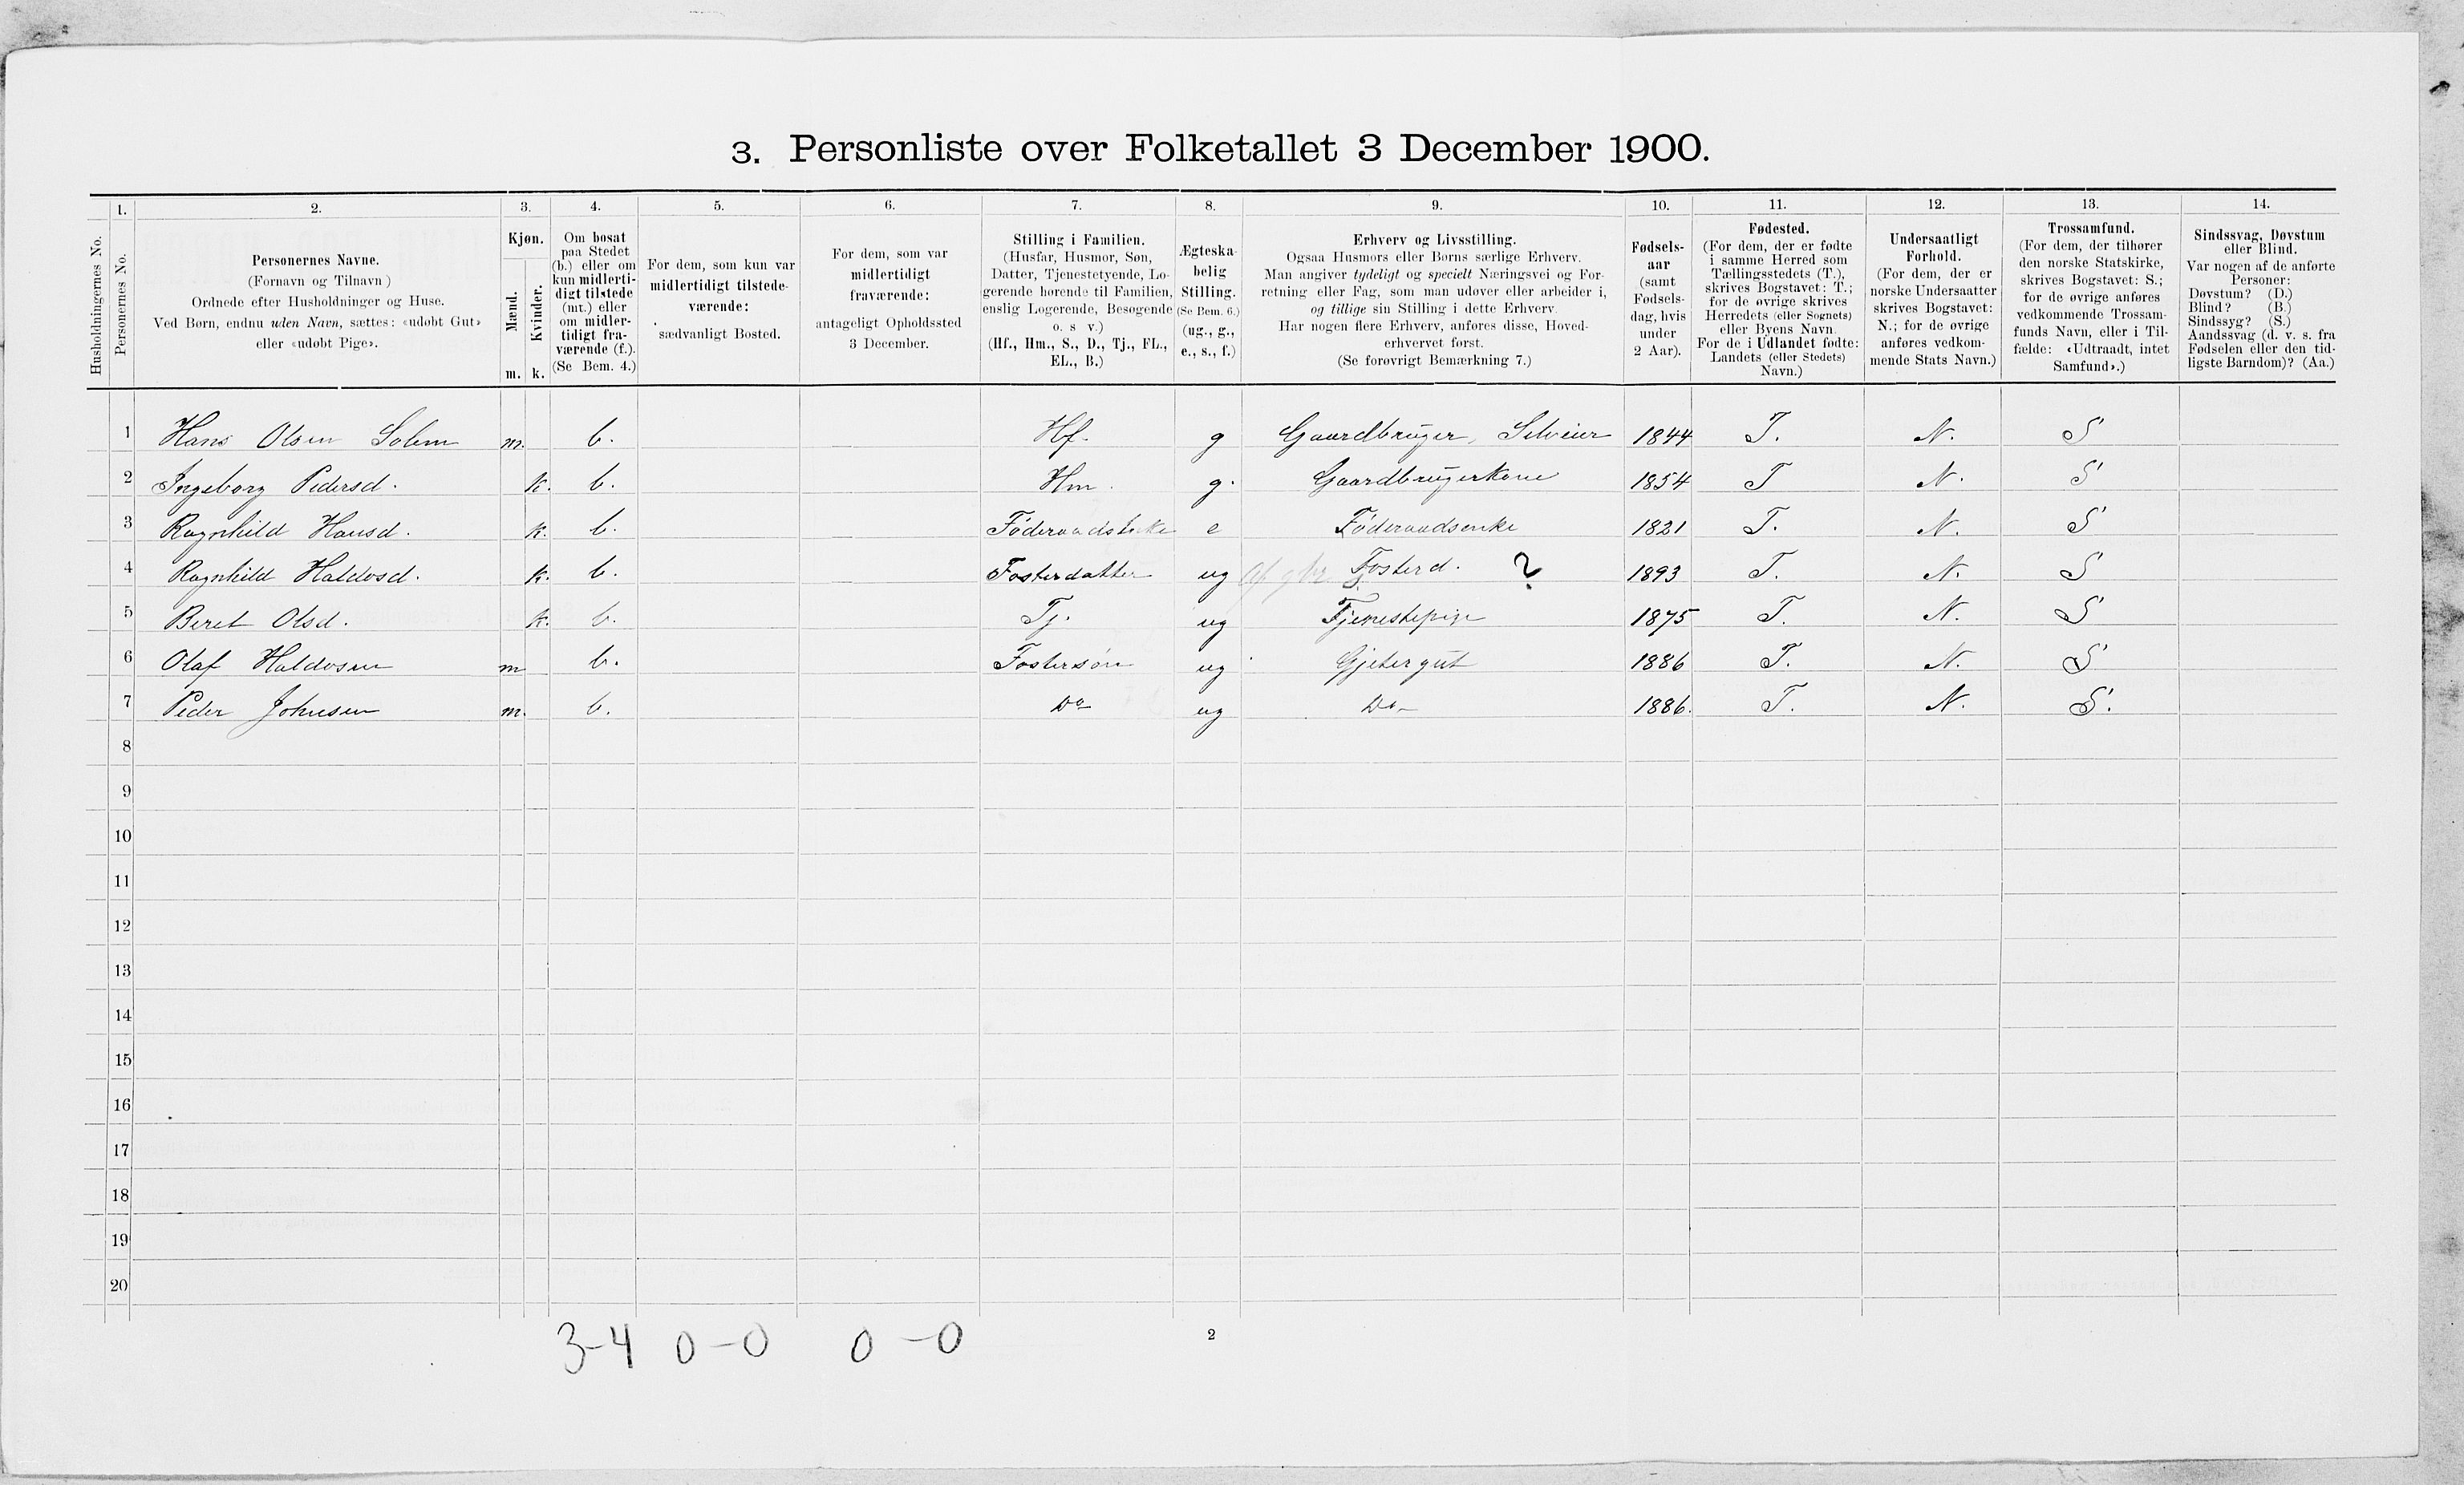 3. Personliste over Folketallet 3 December 1900.
1. 2. 3. 4. 5. 6. 7. 8. 9. 10. 11. 12. 13. 14.
Husholdningernes No.
Personernes No.
Personernes Navne.
(Fornavn og Tilnavn)
Ordnede efter Husholdninger og Huse.
Ved Børn, endnu uden Navn, sættes: «udøbt Gut»
eller «udøbt Pige».
Kjøn.
Mænd.
Kvinder.
m. k.
Om bosat
paa Stedet
(b.) eller om
kun midlerti-
digt tilstede
(mt.) eller
om midler-
tidigt fra-
værende (f.).
(Se Bem. 4.)
For dem, som kun var
midlertidigt tilstede-
værende:
sædvanligt Bosted.
For dem, som var
midlertidigt
fraværende:
antageligt Opholdssted
3 December.
Stilling i Familien.
(Husfar, Husmor, Søn,
Datter, Tjenestetyende, Lo-
gerende hørende til Familien,
enslig Logerende, Besøgende
o. s v.)
(Hf., Hm., S., D., Tj., FL.,
EL., B.)
Ægteska-
belig
Stilling.
(Se Bem. 6.)
(ug., g.,
e., s., f.)
Erhverv og Livsstilling.
Ogsaa Husmors eller Børns særlige Erhverv.
Man angiver tydeligt og specielt Næringsvei og For-
retning eller Fag, som man udøver eller arbeider i,
og tillige sin Stilling i dette Erhverv.
Har nogen flere Erhverv, anføres disse, Hoved-
erhvervet først.
(Se forøvrigt Bemærkning 7.)
Fødsels-
aar
(samt
Fødsels-
dag, hvis
under
2 Aar).
Fødested.
(For dem, der er fødte
i samme Herred som
Tællingsstedets (T.),
skrives Bogstavet: T.;
for de øvrige skrives
Herredets (eller Sognets)
eller Byens Navn.
For de i Udlandet fødte:
Landets (eller Stedets)
Navn.)
Undersaatligt
Forhold.
(For dem, der er
norske Undersaatter
skrives Bogstavet:
N.; for de øvrige
anføres vedkom-
mende Stats Navn.)
Trossamfund.
(For dem, der tilhører
den norske Statskirke,
skrives Bogstavet: S.;
for de øvrige anføres
vedkommende Trossam-
funds Navn, eller i Til-
fælde: «Udtraadt, intet
Samfund».)
Sindssvag, Døvstum
eller Blind.
Var nogen af de anførte
Personer:
Døvstum? (D.)
Blind? (B.)
Sindssyg? (S.)
Aandssvag (d. v. s. fra
Fødselen eller den tid-
ligste Barndom)? (Aa.)
1 Hans Olsen Solem m. b. Hf. g Gaardbruger, Selveier 1844 T. N. S
2 Ingeborg Pedersd. k. b. Hm. g. Gaardbrugerkone 1854 T N. S
3 Ragnhild Hansd. k. b. Føderaadsenke e Føderaadsenke 1821 T. N. S
4 Ragnhild Haldosd. k. b. Fosterdatter ug Fosterd. ? 1893 T. N. S
5 Beret Olsd. k. b. Tj. ug Tjenestepige 1875 T. N. S
6 Olaf Haldosen m b. Fostersøn ug Gjetergut 1886 T. N. S
7 Peder Johnsen m. b. Do ug Do 1886. T. N. S.
8
9
10
11
12
13
14
15
16
17
18
19
20
3-4 0-0 0-0 2